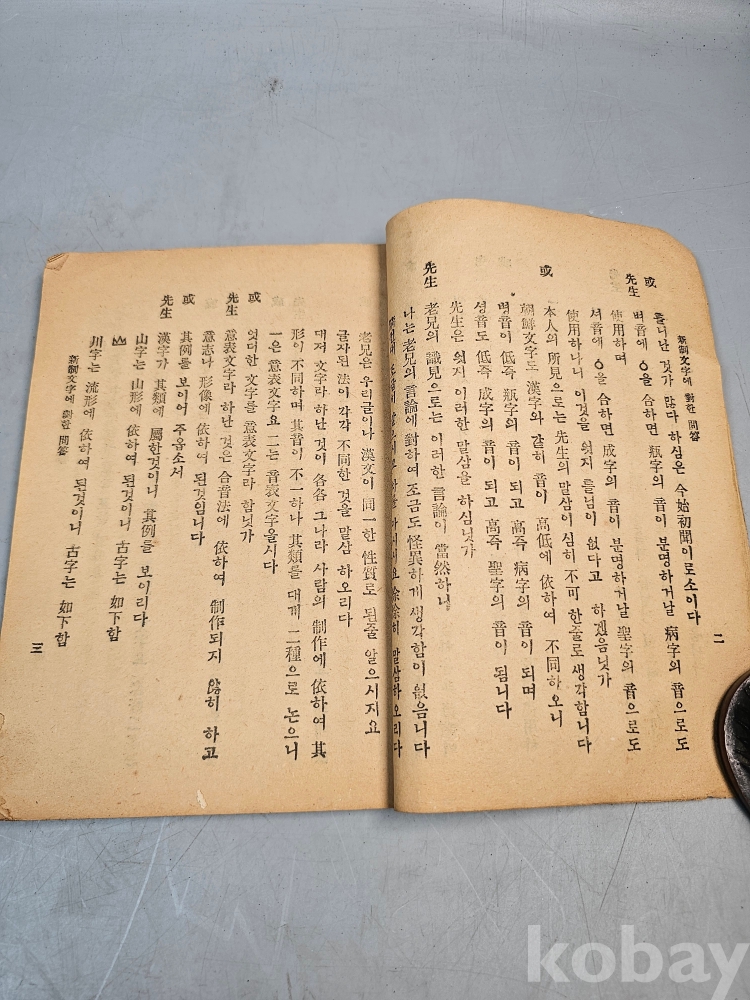 新制文字에 對한 問答
二
或
틀니난 것가 많다 하심은 今始初聞이로소이다
先生
벼音에 ㅇ을 合하면 甁字의 音이 분명하거날 病字의 音으로도
使用하며
셔音에 ㅇ을 合하면 成字의 音이 분명하거날 聖字의 音으로도
使用하나니 이것을 엇지 틀님이 업다고 하겠음닛가
或
本人의 所見으로는 先生의 말삼이 심히 不可한줄로 생각함니다
朝鮮文字도 漢字와 갈히 音이 高低에 依하여 不同하오니
벼音이 低즉 甁字의 音이 되고 高즉 病字의 音이 되며
셩音도 低즉 成字의 音이 되고 高즉 聖字의 音이 됨니다
先生은 엇지 이러한 말삼을 하심닛가
先生
老兄의 識見으로는 이러한 言論이 當然하나
나는 老兄의 言論에 對하여 조금도 怪異하게 생각함이 없음니다
말삼하오리다
老兄은 우리글이나 漢文이 同一한 性質로 된줄 알으시지요
글자된 法이 각각 不同한 것을 말삼 하오리다
대저 文字라 하난 것이 各各 그나라 사람의 制作에 依하여 其
形이 不同하며 其音이 不一하나 其類를 대개 二種으로 논으니
一은 意表文字요 二는 音表文字올시다
或
엇더한 文字를 意表文字라 함닛가
先生
意表文字라 하난 것은 合音法에 依하여 制作되지 않히 하고
意志나 形像에 依하여 된것입니다
或
其例를 보이어 주옵소서
先生
漢字가 其類에 屬한것이니 其例를 보이리다
山字는 山形에 依하여 된것이니 古字는 如下함
川字는 流形에 依하여 된것이니 古字는 如下함
新制文字에 對한 問答
三
kobay